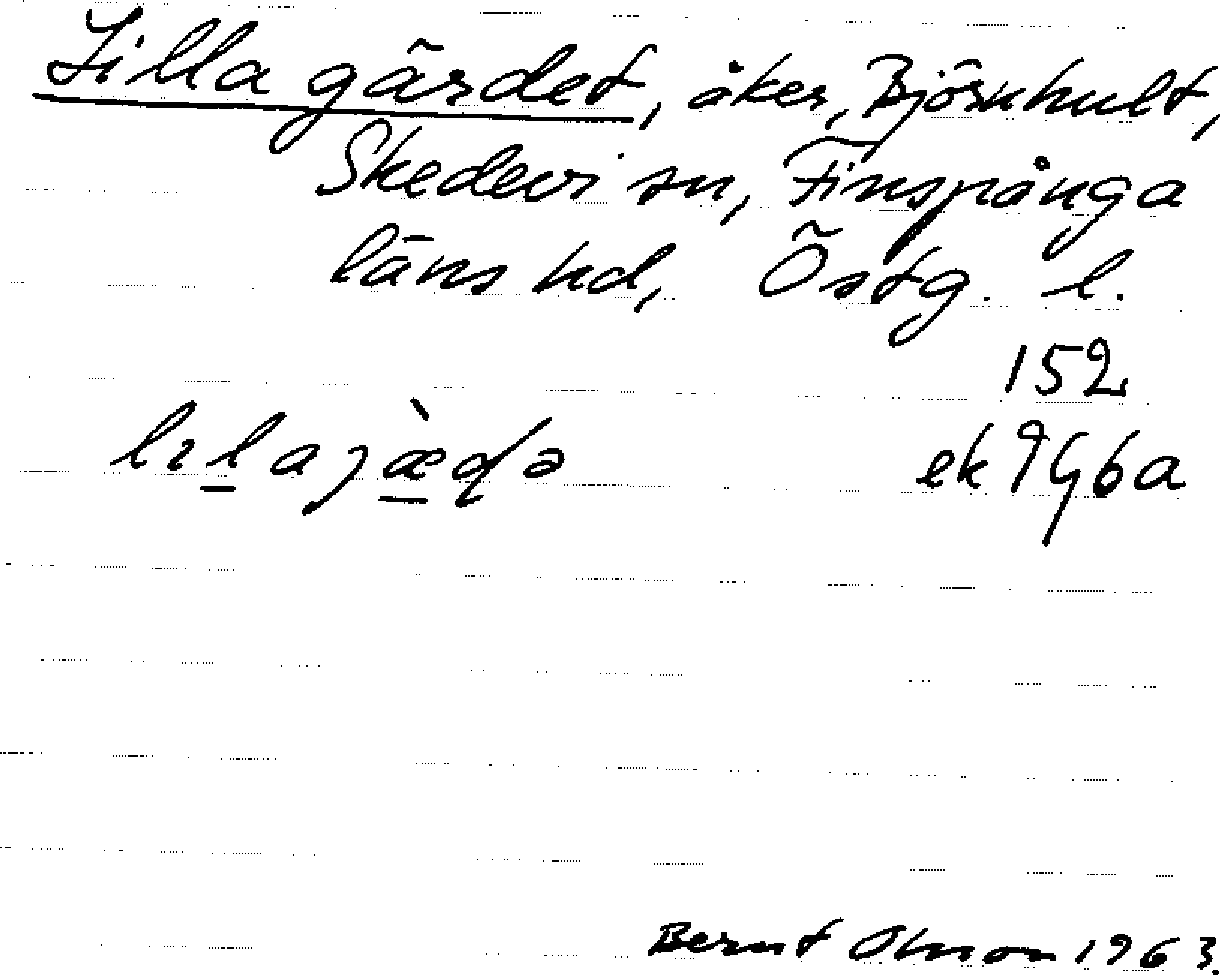 Lilla gärdet, åker, Björnhult,
Skedevi sn, Finspånga
läns hd, Östg. l.
152
ek 9G6a
Bernt Olsson 1963.